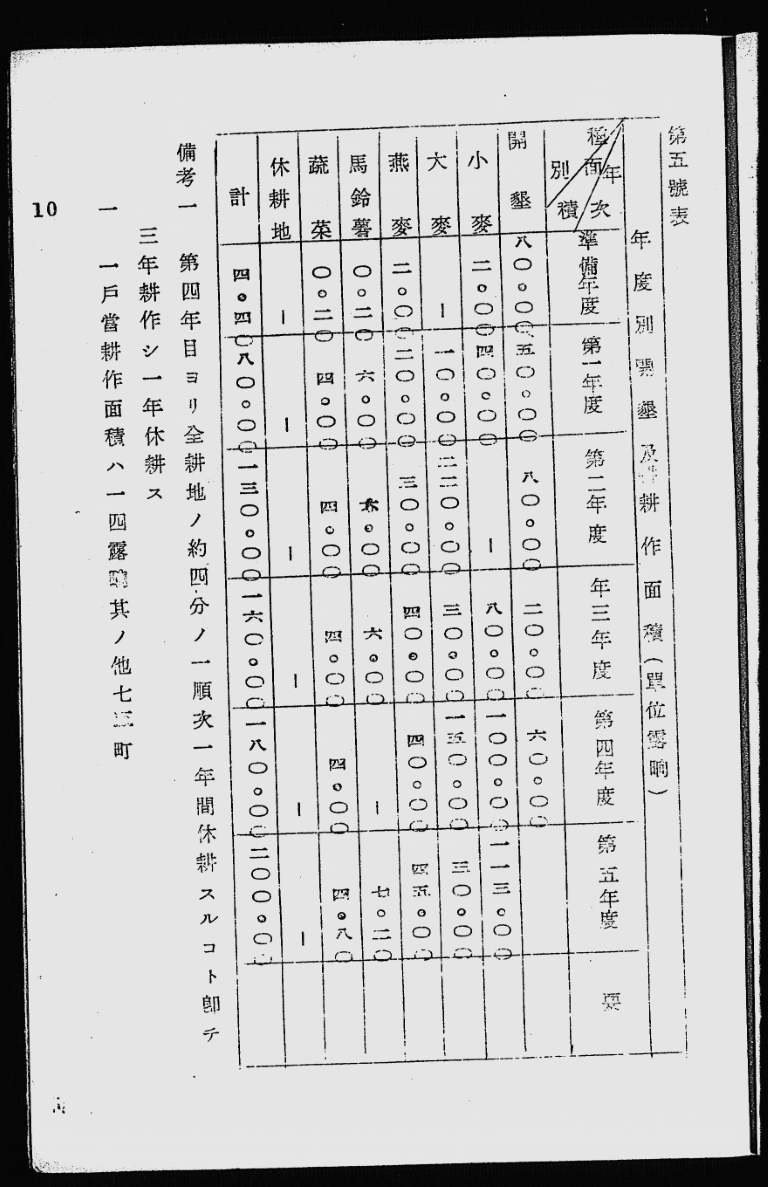 第五號表
年度別開墾及耕作面積(單位露晌)
種別 面積 年次
準備年度
第一年度
第二年度
年三年度
第四年度
第五年度
要
開墾 八〇。〇〇 五〇。〇〇 八〇。〇〇 二〇。〇〇 六〇。〇〇
小麥 二。〇〇 四〇。〇〇 — 八〇。〇〇 一〇〇。〇〇 一一三。〇〇
大麥 — 一〇。〇〇 二二〇。〇〇 三〇。〇〇 一五〇。〇〇 三〇。〇〇
燕麥 二。〇〇 二〇。〇〇 三〇。〇〇 四〇。〇〇 四〇。〇〇 四五。〇〇
馬鈴薯 〇。二〇 六。〇〇 六。〇〇 六。〇〇 — 七。二〇
蔬菜 〇。二〇 四。〇〇 四。〇〇 四。〇〇 四。〇〇 四。八〇
休耕地 — — — — — —
計 四。四〇 八〇。〇〇 一三〇。〇〇 一六〇。〇〇 一八〇。〇〇 二〇〇。〇〇
備考一 第四年目ヨリ全耕地ノ約四分ノ一順次一年間休耕スルコト卽テ
三年耕作シ一年休耕ス
一 一戶當耕作面積ハ一四露晌其ノ他七五町
10